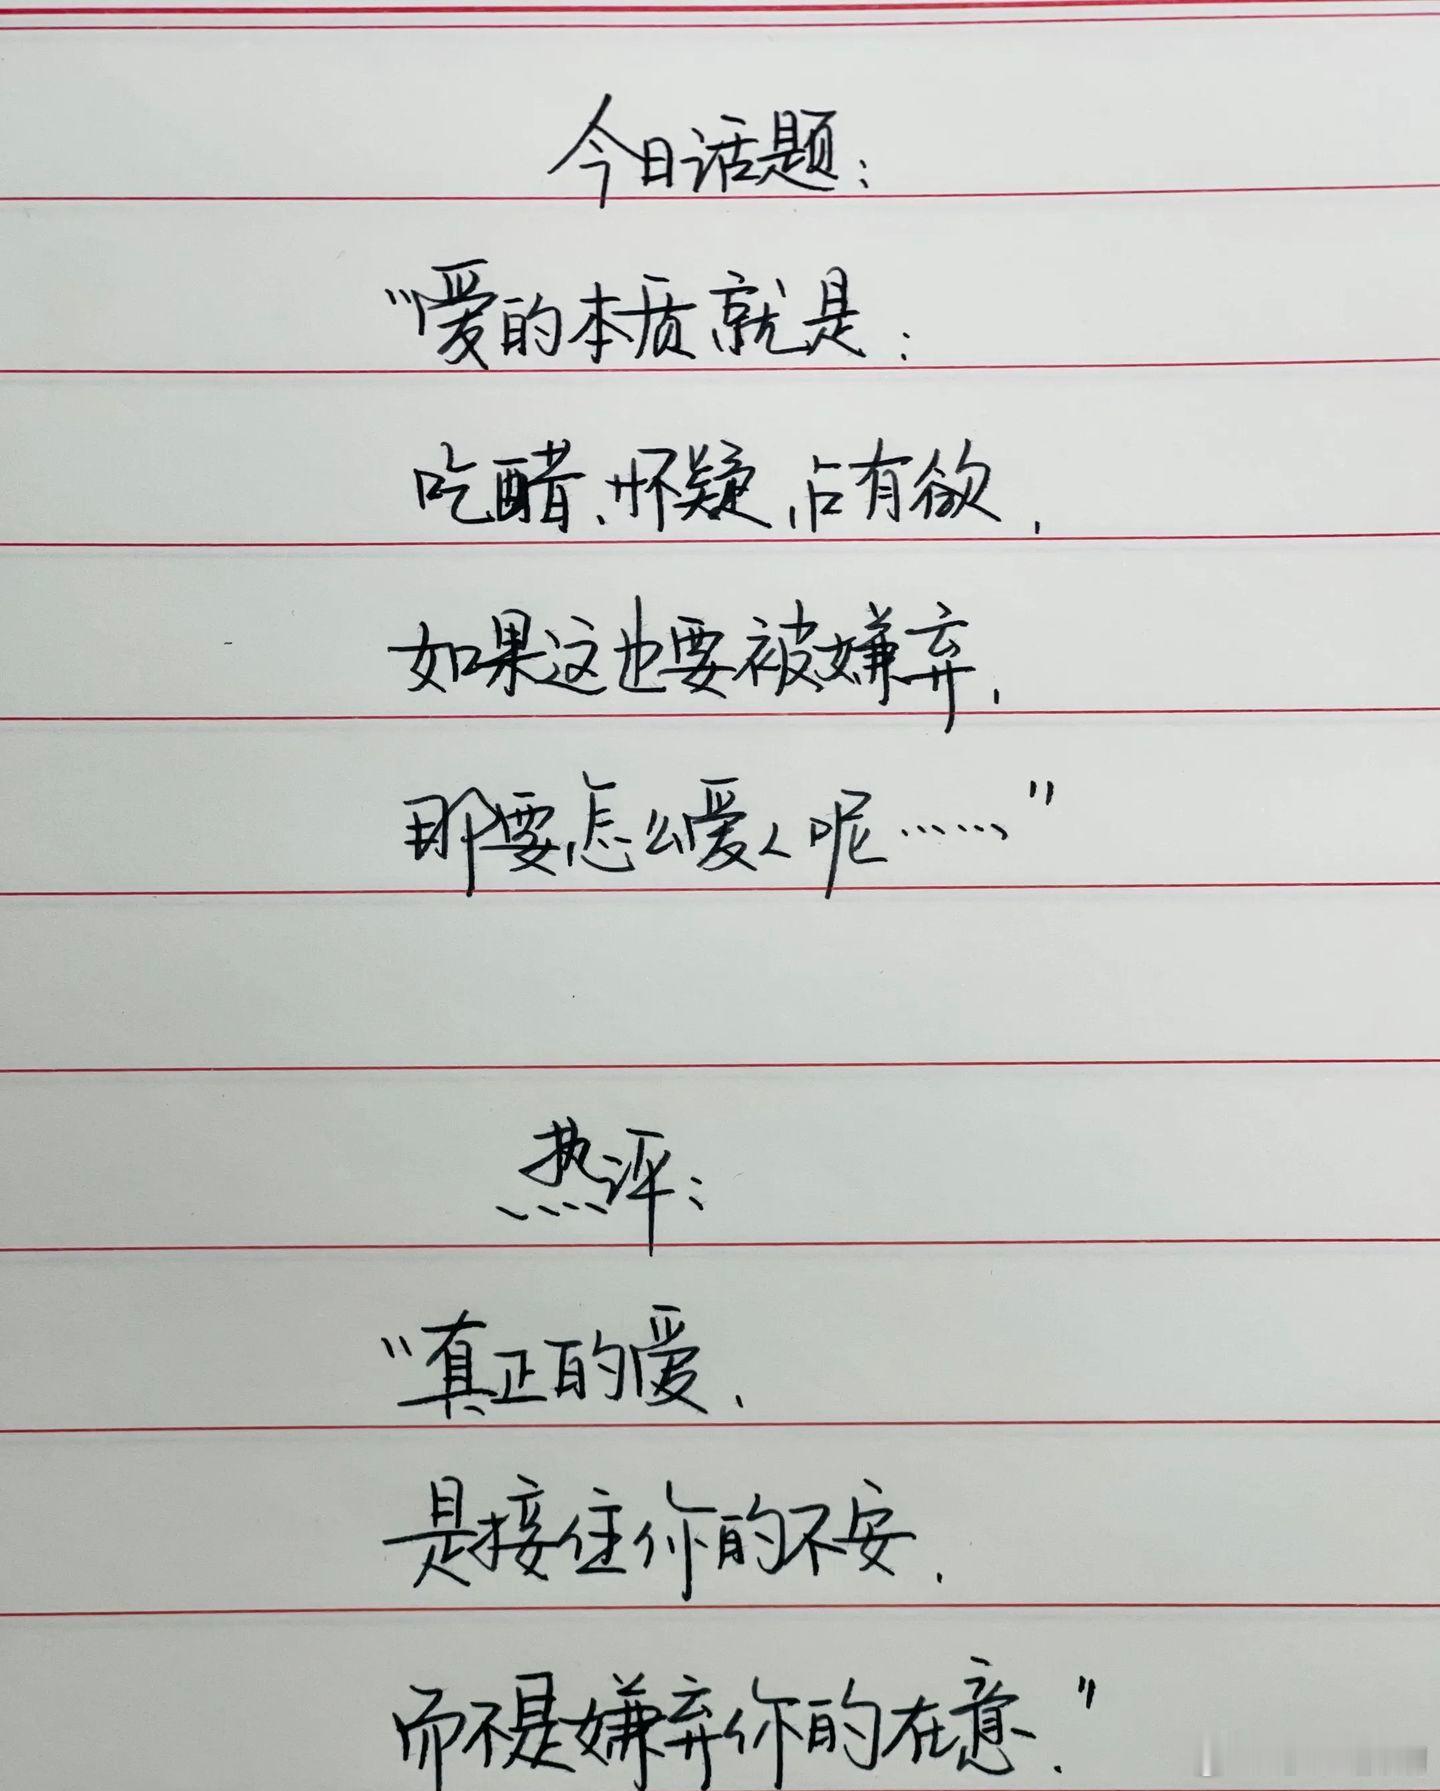 今日话题：
“爱的本质就是：
吃醋、怀疑，占有欲，
如果这也要被嫌弃，
那要怎么爱人呢……”
热评：
“真正的爱，
是接住你的不安，
而不是嫌弃你的在意.”